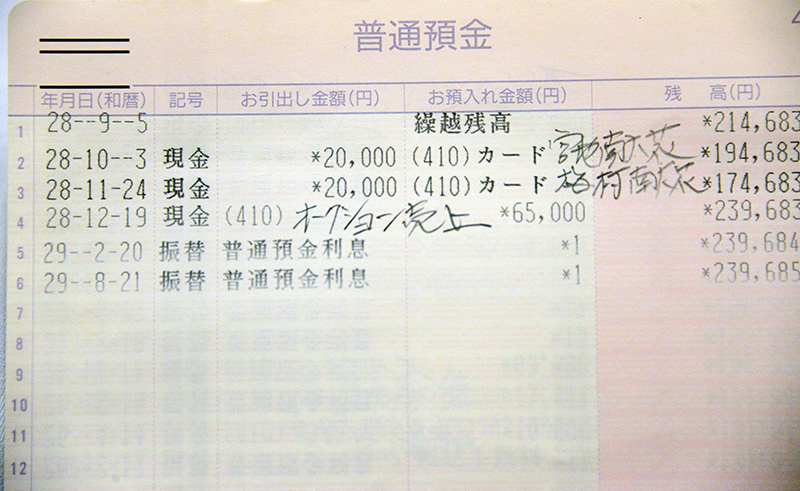 普通預金
年月日(和暦) 記号 お引出し金額(円) お預入れ金額(円) 残 高(円)
1 28--9--5 繰越残高 *214,683
2 28-10--3 現金 *20,000 (410) カード *194,683
3 28-11-24 現金 *20,000 (410) カード *174,683
4 28-12-19 現金 (410) オークション売上 *65,000 *239,683
5 29--2-20 振替 普通預金利息 *1 *239,684
6 29--8-21 振替 普通預金利息 *1 *239,685
7
8
9
10
11
12